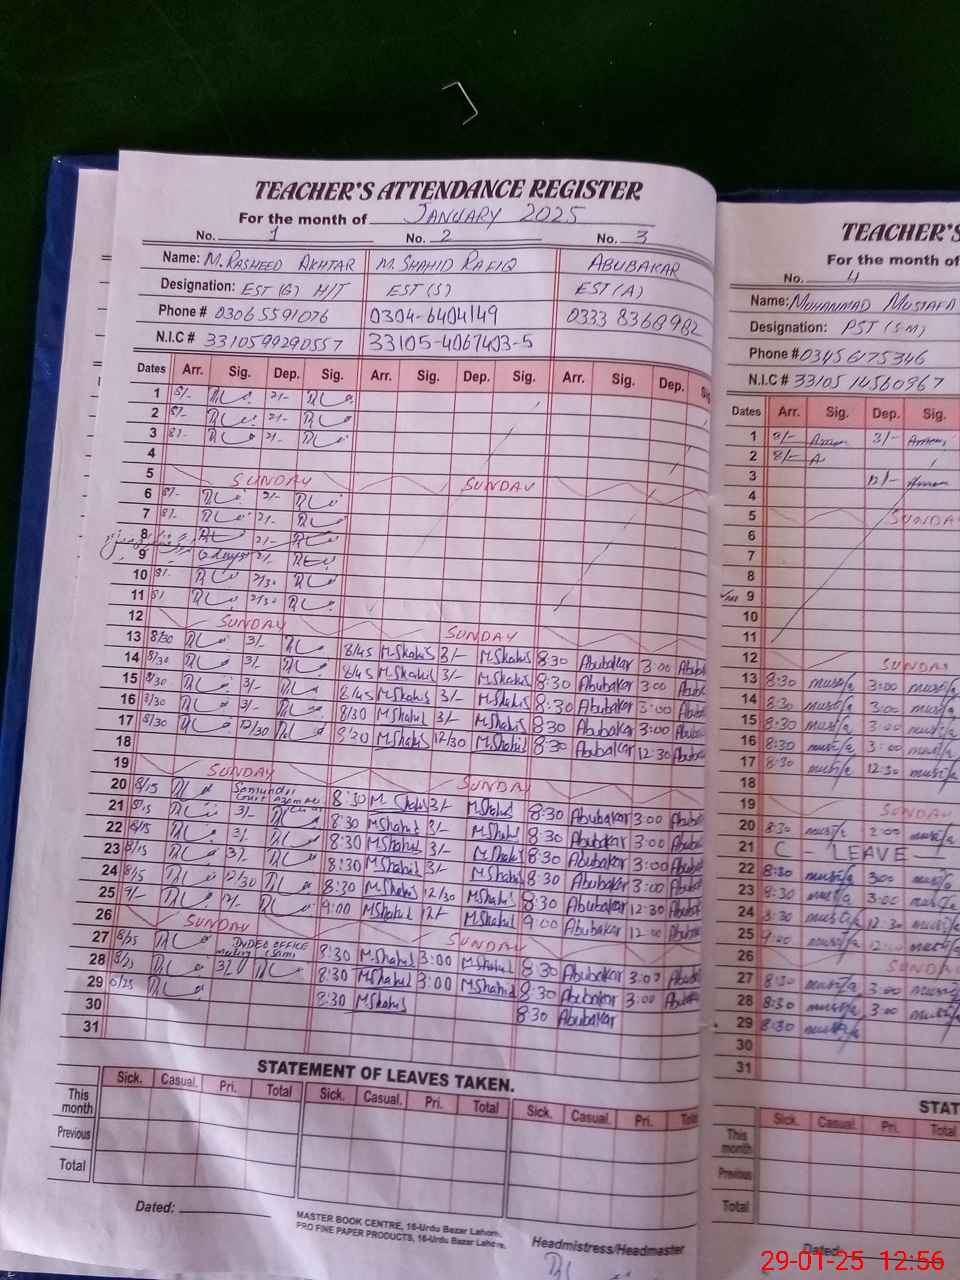 TEACHER'S ATTENDANCE REGISTER
For the month of JANUARY 2025
No. 1 No. 2 No. 3
Name: M. RASHEED AKHTAR M. SHAHID RAFIQ ABUBAKAR
Designation: EST (G) H/T EST (S) EST (A)
Phone # 03065591076 0304-6404149 0333 8368982
N.I.C # 3310599290557 33105-4067403-5
Dates Arr. Sig. Dep. Sig. Arr. Sig. Dep. Sig. Arr. Sig. Dep.
1 8/- 2/-
2 8/- 2/-
3 8/- 2/-
4
5 SUNDAY SUNDAY
6 8/- 2/-
7 8/- 2/-
8 2/-
9 2/-
10 8/- 2/30
11 8/ 2/30
12 SUNDAY SUNDAY
13 8/30 3/- 8/45 M.Shahid 3/- M.Shahid 8:30 Abubakar 3:00
14 8/30 3/- 8/45 M.Shahid 3/- M.Shahid 8:30 Abubakar 3:00
15 8/30 3/- 8/45 M.Shahid 3/- M.Shahid 8:30 Abubakar 3:00
16 8/30 3/- 8/30 M.Shahid 3/- M.Shahid 8:30 Abubakar 3:00
17 8/30 12/30 8:20 M.Shahid 12/30 M.Shahid 8:30 Abubakar 12:30
18
19 SUNDAY SUNDAY
20 8/15 8:30 M. Shahid 3/- M.Shahid 8:30 Abubakar 3:00
21 8/15 3/- 8:30 MShahid 3/- MShahid 8:30 Abubakar 3:00
22 8/15 3/- 8:30 MShahid 3/- M.Shahid 8:30 Abubakar 3:00
23 8/15 3/- 8:30 MShahid 3/- MShahid 8:30 Abubakar 3:00
24 8/15 12/30 8:30 MShahid 12/30 MShahid 8:30 Abubakar 12:30
25 9/- 12/- 9:00 MShahid 12/- MShahid 9:00 Abubakar 12:00
26 SUNDAY SUNDAY
27 8/25 OFFICE 8:30 MShahid 3:00 MShahid 8:30 Abubakar 3:00
28 8/25 3/ 8:30 MShahid 3:00 MShahid 8:30 Abubakar 3:00
29 8/25 8:30 MShahid 8:30 Abubakar
30
31
STATEMENT OF LEAVES TAKEN.
Sick. Casual. Pri. Total Sick. Casual. Pri. Total Sick. Casual. Pri.
This month
Previous
Total
Dated:
MASTER BOOK CENTRE, 16-Urdu Bazar Lahore.
PRO FINE PAPER PRODUCTS, 16-Urdu Bazar Lahore.
Headmistress/Headmaster
TEACHER'S
For the month of
No. 4
Name: MUHAMMAD MUSTAFA
Designation: PST (S-M)
Phone # 03456175346
N.I.C # 33105 14560967
Dates Arr. Sig. Dep. Sig.
1 8/- 3/-
2 8/-
3 12/-
4
5 SUNDAY
6
7
8
9
10
11
12 SUNDAY
13 8:30 mustfa 3:00 mustfa
14 8:30 mustfa 3:00 mustfa
15 8:30 mustfa 3:00 mustfa
16 8:30 mustfa 3:00 mustfa
17 8:30 mustfa 12:30 mustfa
18
19 SUNDAY
20 8:30 mustfa mustfa
21 C - LEAVE
22 8:30 mustfa 3:00 mustfa
23 8:30 mustfa 3:00 mustfa
24 8:30 mustfa 12:30 mustfa
25 9:00 mustfa 12:00 mustfa
26 SUNDAY
27 8:30 mustfa 3:00 mustfa
28 8:30 mustfa 3:00 mustfa
29 8:30 mustfa
30
31
Sick. Casual. Pri. Total
This month
Previous
Total
Dated:
29-01-25 12:56